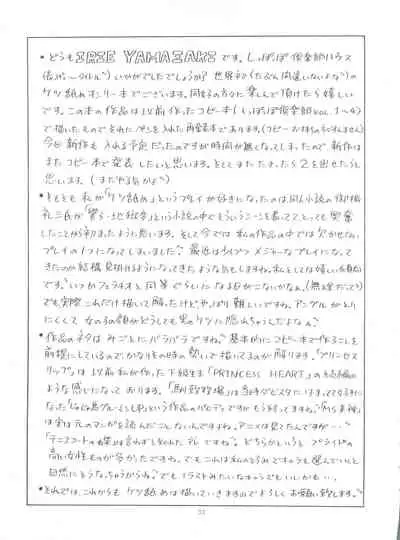 ・どうも IRIE YAMAZAKI です。しっぽぽ倶楽部ハウス
いかがでしたでしょうか? 世界初(たぶん間違いないよな)の
ケツ舐めオンリー本でございます。同好の方々に楽しんで頂けたら嬉しい
です。この本の作品は以前作ったコピー本(しっぽぽ倶楽部VOL.1~4)
で描いたものでそれにペンを入れた再録本であります(コピーお持ちの方すみません)
今回新作も入れる予定だったのですが時間が無くなってしまったので新作は
またコピー本で発表したいと思います。そしてまたたまったら2を出せたらと
思います。(まだやる気かよ)
・そもそも私が「ケツ舐め」というプレイが好きになったのは、同人小説の御柳
礼三氏が という小説の中でそういうシーンを書いてて、とっても興奮
したことから初まったように思います。そして今では私の作品の中では欠かせない
プレイの1つになってしまいました。最近は少しづつメジャーなプレイになって
きたのか結構見掛けるようになってきたような気もしますね。私としては嬉しい傾向
です。いつかフェラチオと同等ぐらいになる日がこないかなぁ。(無理だって)
でも実際これだけ描いて解ったけど、やっぱり難しいですね。アングルがとり
にくくて女の子の顔がどうしても男のケツに隠れちゃうんだよなぁ。
・作品のネタはみごとにバラバラですね。基本的にコピー本で作ることを
前提にしているのでかなりその時の勢いで描いてるのが解ります。「プリンセス
リップ」は以前私が作った下級生本「PRINCESS HEART」の続編
のような感じになっております。 は当時ダビスタにはまってて好きに
なった という作品のパロディですがもう終ってますね。
は実は元のマンガを読んだことないんですよね。アニメは見てたんですが…。
「テニスコートの 」は言わずと知れた アレですね。どちらかというとプライドの
高い女性ものが多かったですね。でもこれはメインのネタでキャラも選んでいくと
自然にそうなっちゃうからね。でもイラストみたいなキャラでもいいかも…。
・それでは、これからもケツ舐めは描いていきますのでよろしくお願い致します。
32